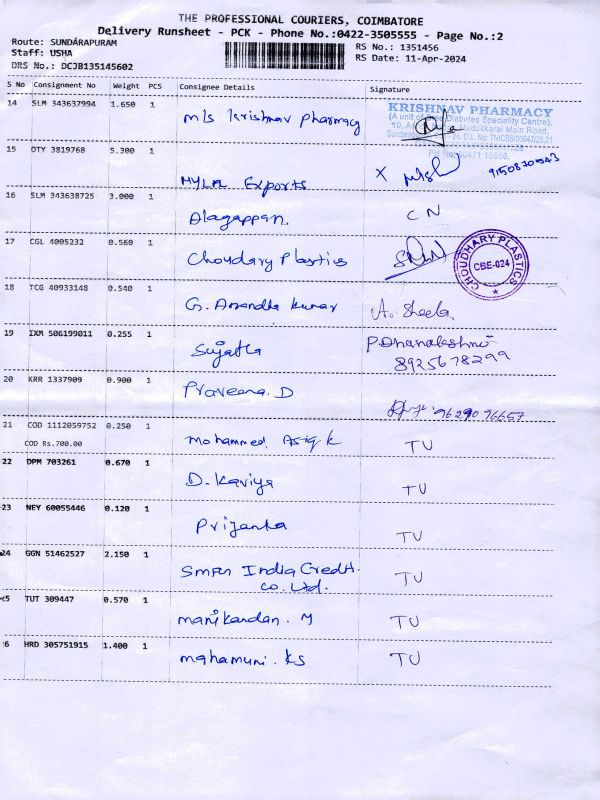 THE PROFESSIONAL COURIERS, COIMBATORE
Delivery Runsheet - PCK - Phone No.:0422-3505555 - Page No.:2
Route: SUNDARAPURAM
Staff: USHA
DRS No.: DCJB135145602
RS No.: 1351456
RS Date: 11-Apr-2024
S No Consignment No Weight PCS Consignee Details Signature
14 SLM 343637994 1.650 1 M/s Krishnav Pharmacy
KRISHNAV PHARMACY
(A unit of Diabetes Speciality Centre),
Madukkarai Main Road,
15 OTY 3819768 5.300 1 MYLM Exports X 9150870543
16 SLM 343638725 3.000 1 Alagappan. CN
17 CGL 4005232 0.560 1 Choudary Plastics
CHOUDHARY PLASTICS
CBE-024
18 TCG 40933148 0.540 1 G. Anandha kumar A. Sheela
19 IXM 506199011 0.255 1 Sujatha P.Dhanalakshmi
8925678299
20 KRR 1337909 0.900 1 Praveena. D 9629076657
21 COD 1112059752 0.250 1 Mohammed Asiq k TU
COD Rs.700.00
22 DPM 703261 0.670 1 D. Kaviya TU
23 NEY 60055446 0.120 1 Priyanka TU
24 GGN 51462527 2.150 1 SMFG India Credit. TU
co. Ltd.
5 TUT 309447 0.570 1 manikandan. M TU
6 HRD 305751915 1.400 1 mahamuni. KS TU